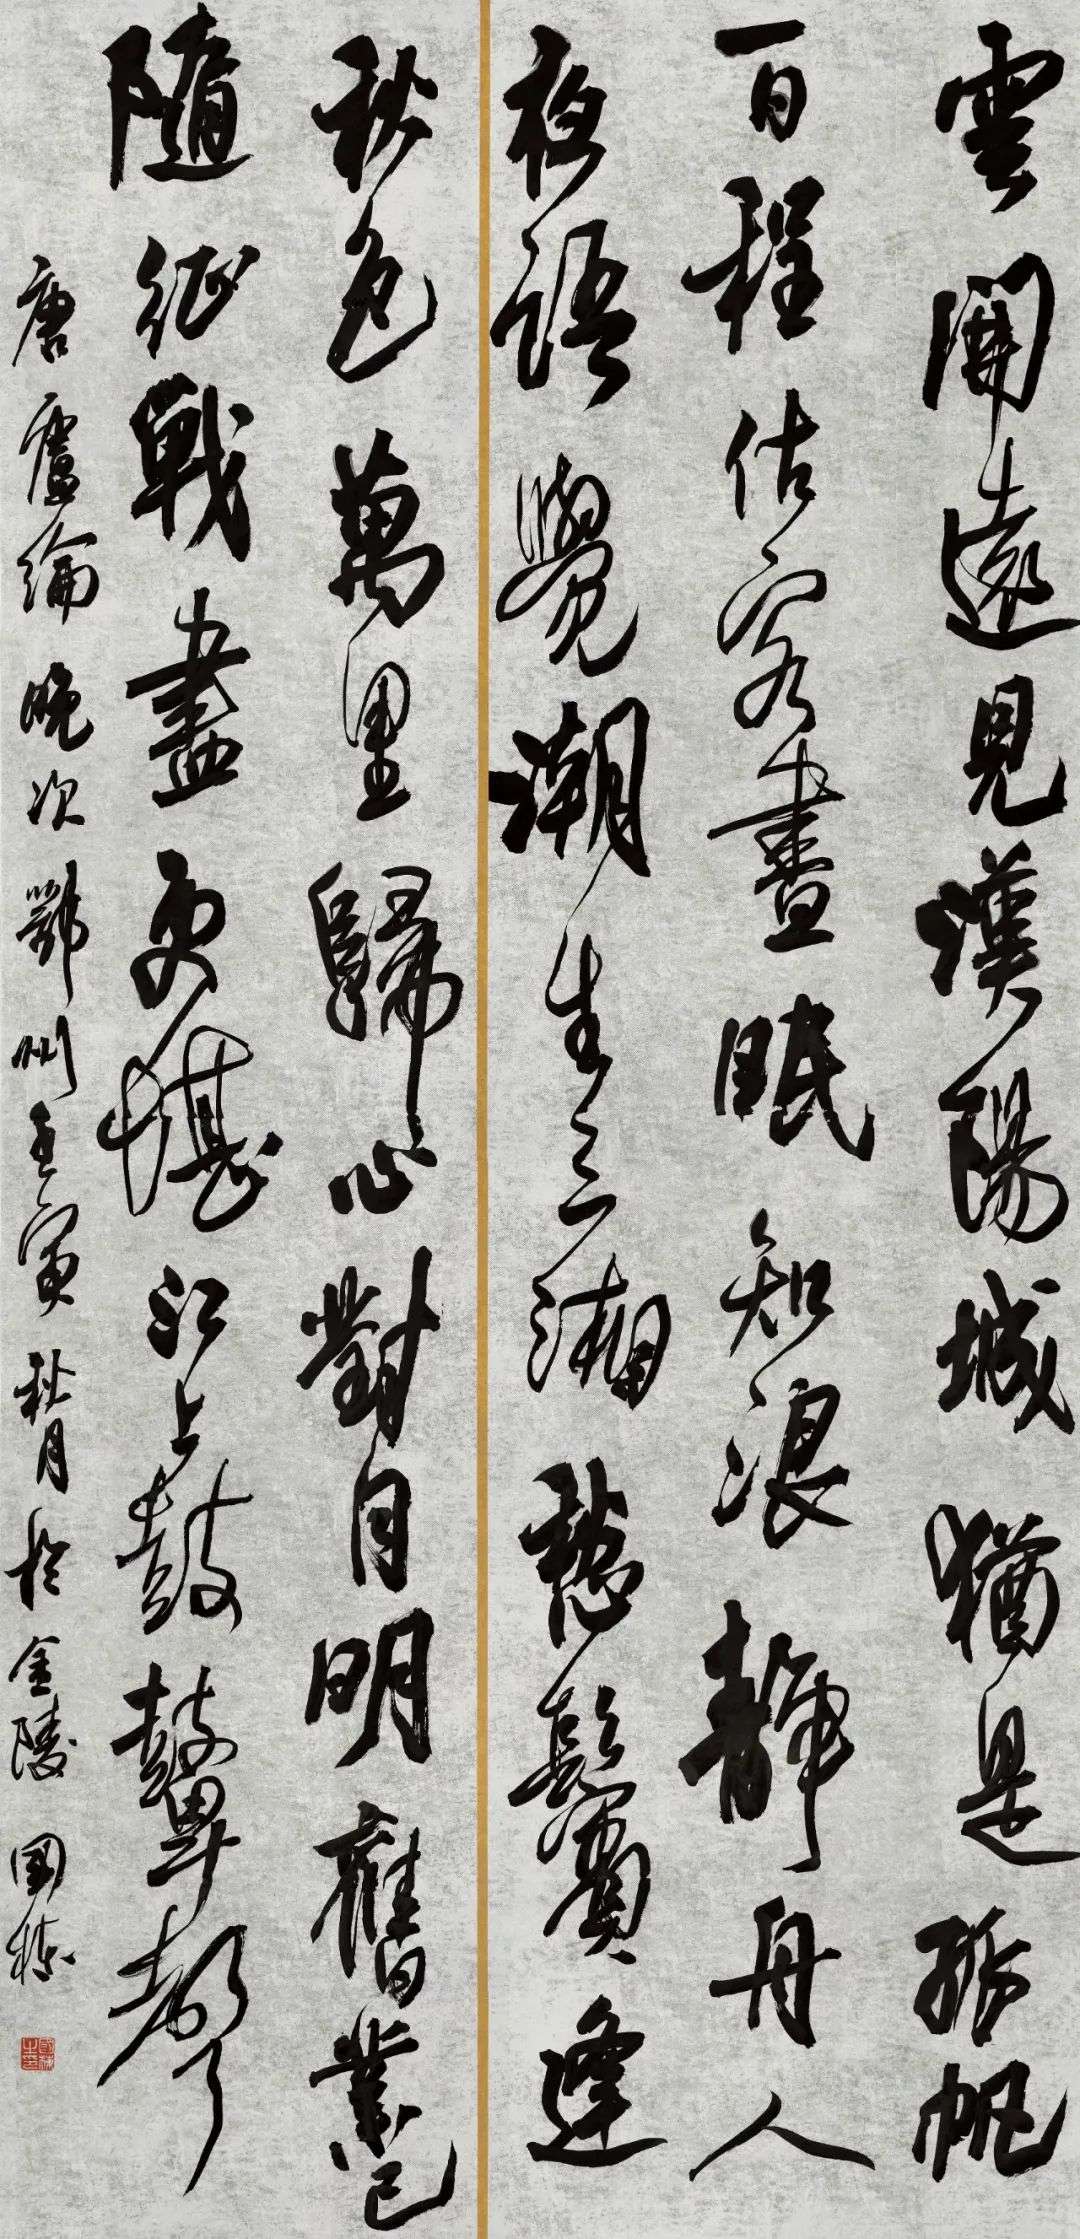 雲開遠見漢陽城猶是孤帆
一日程估客晝眠知浪靜舟人
夜語覺潮生三湘愁鬢逢
秋色萬里歸心對月明舊業已
隨征戰盡更堪江上鼓鼙聲
唐盧綸晚次鄂州壬寅秋月於金陵國棟